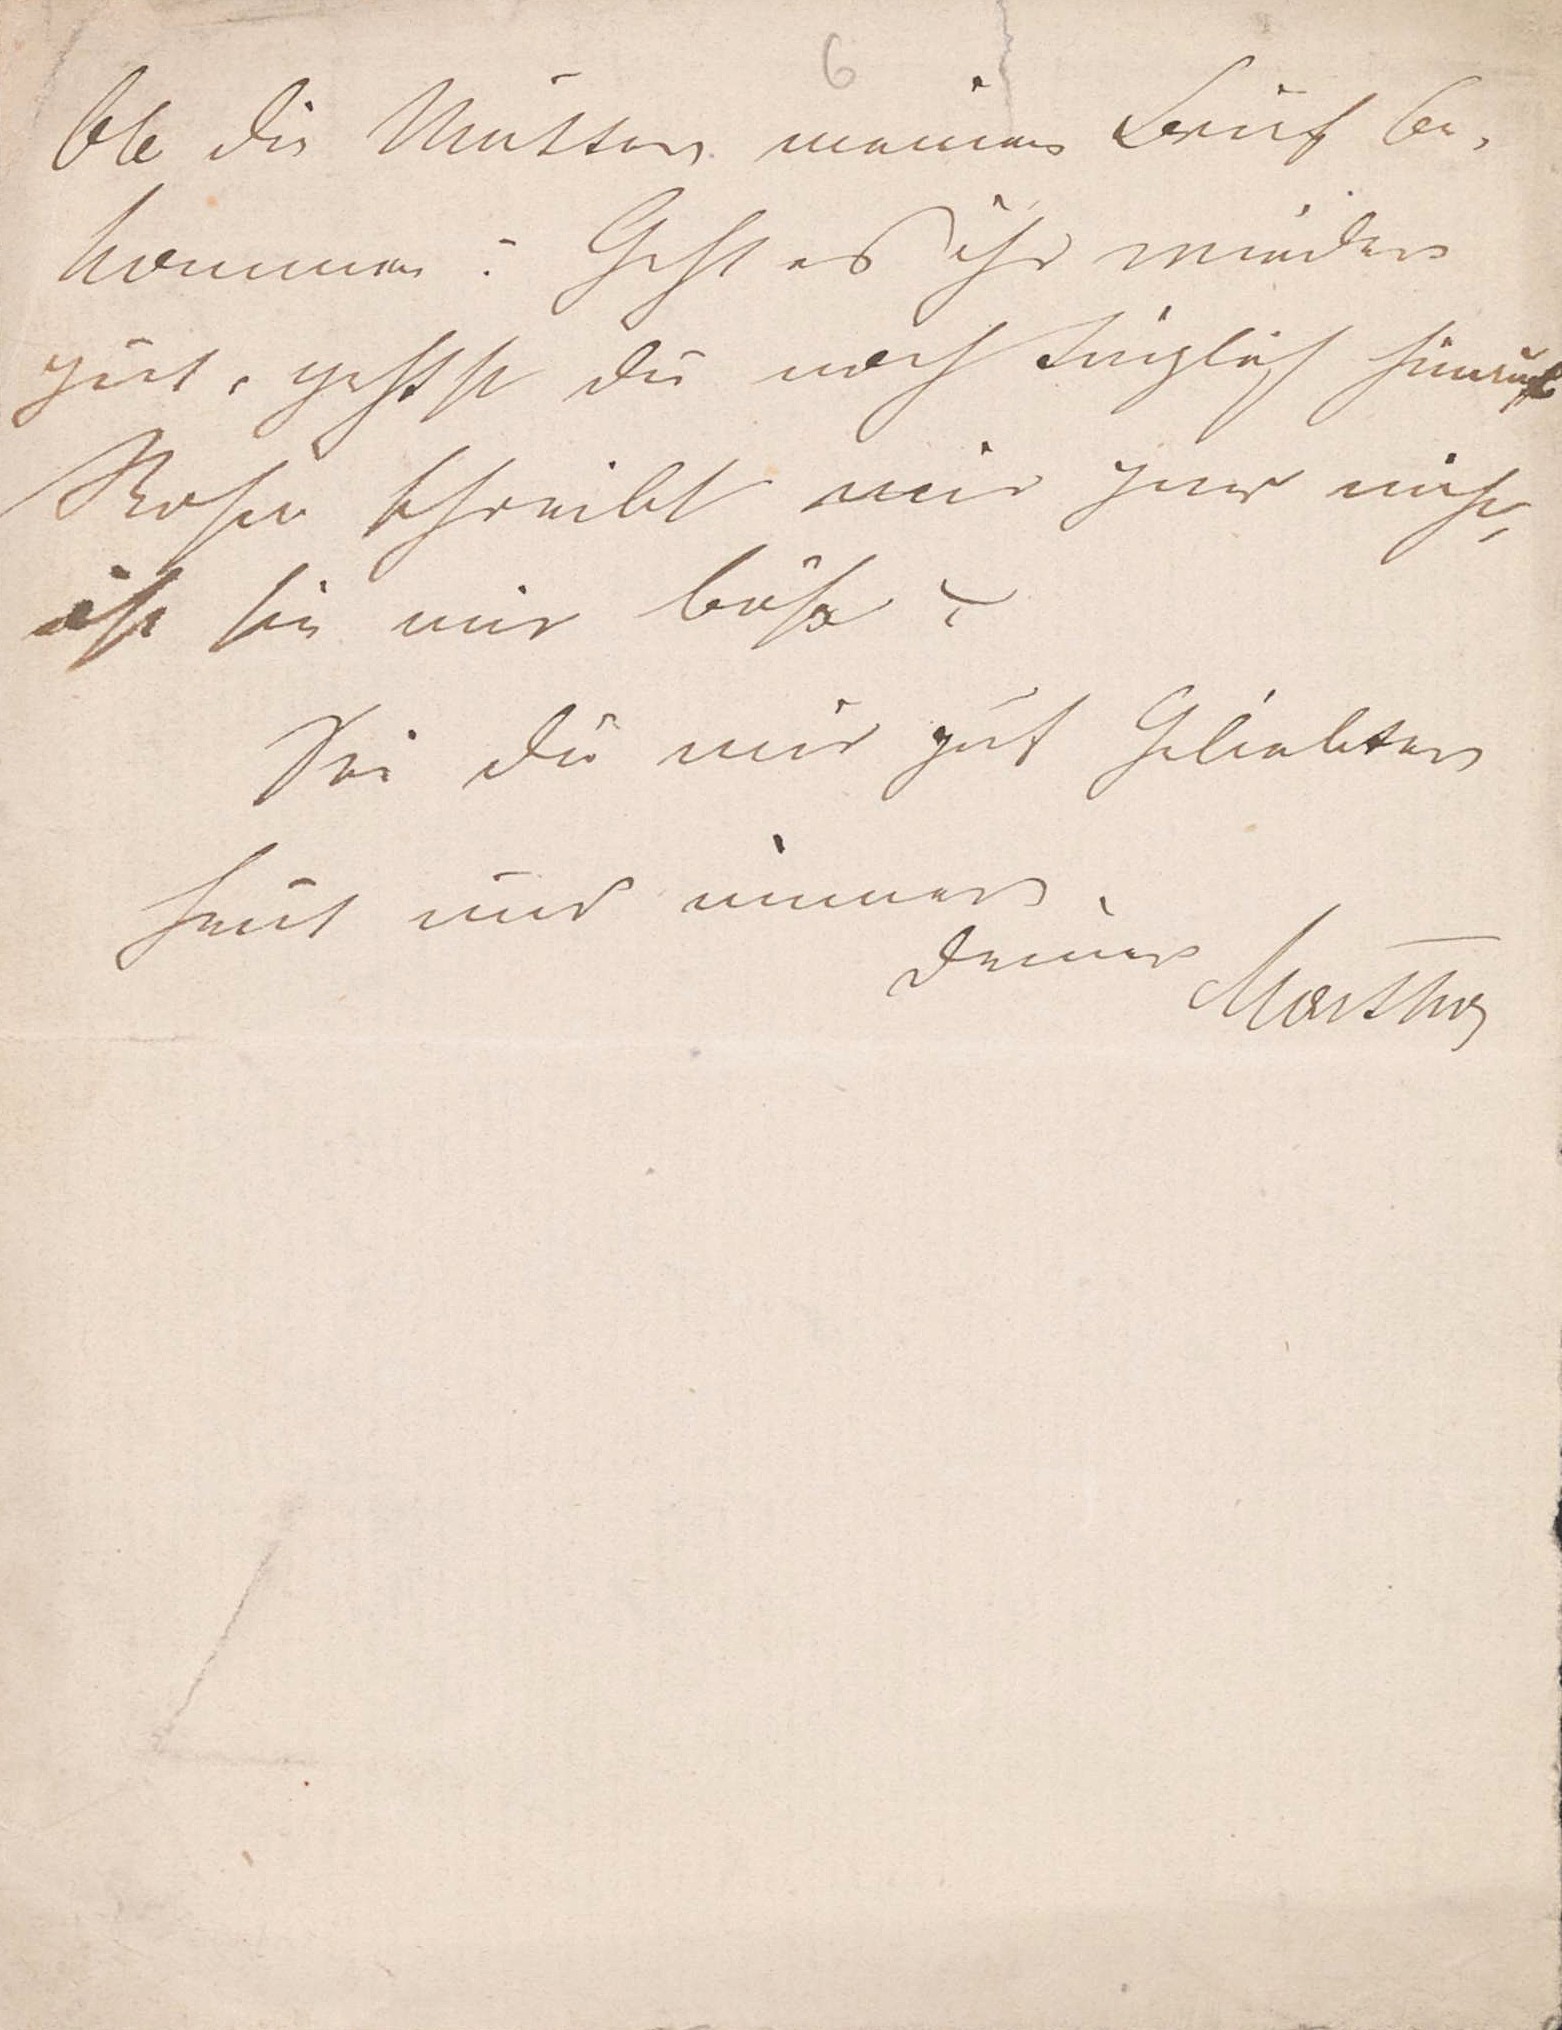 6
Ob die Mutter meinen Brief be-
kommen? Geht es ihr wieder
gut, gehst du noch täglich hinaus
Rosa schreibt mir gar nicht,
ist sie mir böse?
Sei du mir gut Geliebter
heut und immer.
Deine Martha